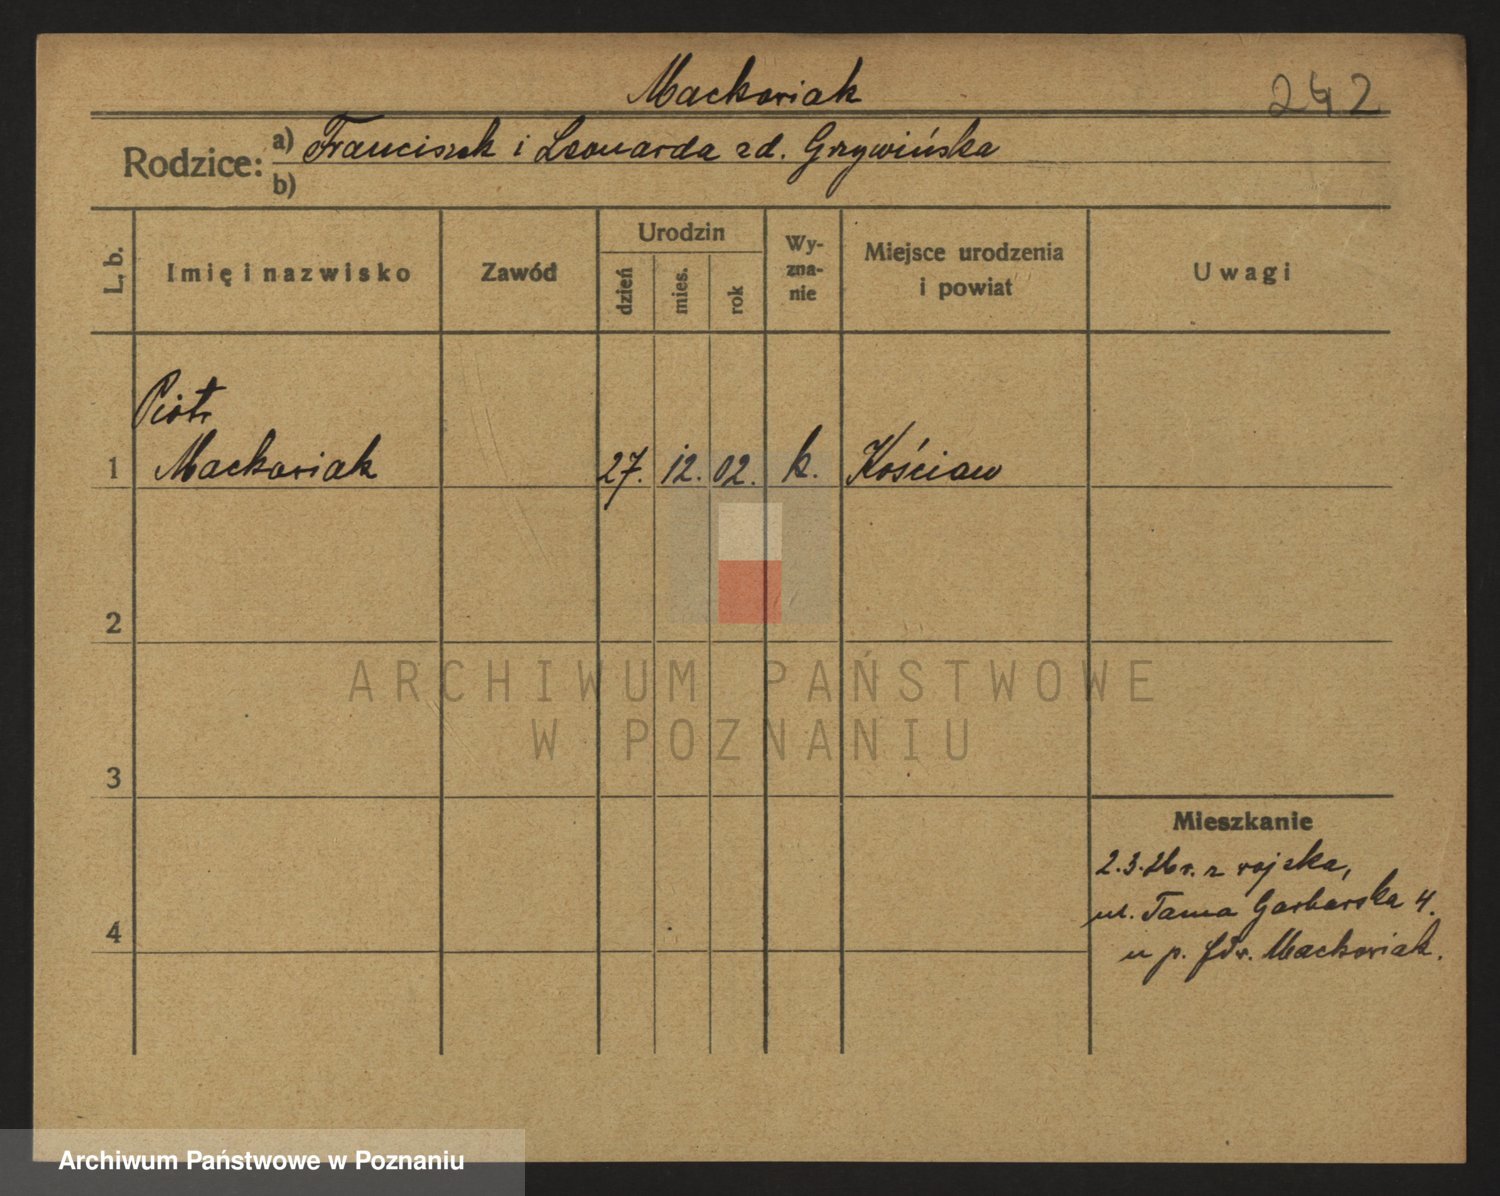 Mackowiak
242
Rodzice: a) Franciszek i Leonarda zd. Grzywińska
b)
L. b.
Imię i nazwisko
Zawód
Urodzin
dzień
mies.
rok
Wy-
zna-
nie
Miejsce urodzenia
i powiat
Uwagi
Piotr
1 Mackowiak 27. 12. 02. k. Kościan
2
ARCHIWUM PAŃSTWOWE
W POZNANIU
3
Mieszkanie
2.3.26 r. z wojska,
ul. Tama Garbarska 4.
4
u p. Mackowiak.
Archiwum Państwowe w Poznaniu